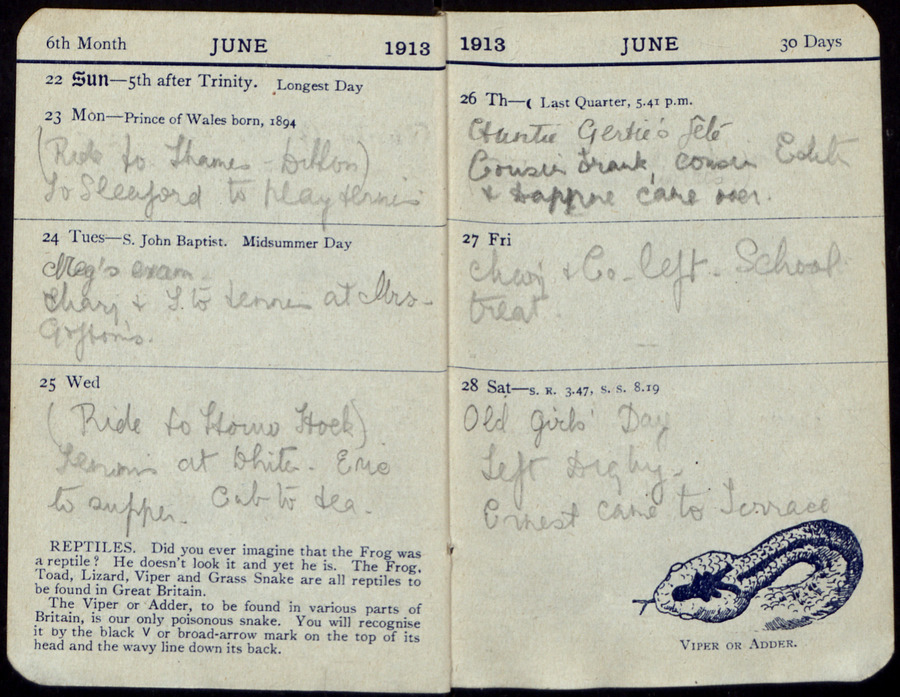 6th Month JUNE 1913
22 Sun—5th after Trinity. Longest Day
23 Mon—Prince of Wales born, 1894
(Ride to Thames-Ditton)
To Sleaford to play tennis
24 Tues—S. John Baptist. Midsummer Day
Meg's exam.
& to tennis at Mrs-
25 Wed
(Ride to
Tennis at White. Eric
to supper. Cub to tea.
REPTILES. Did you ever imagine that the Frog was
a reptile? He doesn't look it and yet he is. The Frog,
Toad, Lizard, Viper and Grass Snake are all reptiles to
be found in Great Britain.
The Viper or Adder, to be found in various parts of
Britain, is our only poisonous snake. You will recognise
it by the black V or broad-arrow mark on the top of its
head and the wavy line down its back.
1913 JUNE 30 Days
26 Th—( Last Quarter, 5.41 p.m.
Auntie Gertie's fête
Cousin Frank, cousin Edith
& came over.
27 Fri
& Co. left. School
treat.
28 Sat—S. R. 3.47, S. S. 8.19
Old Girls' Day
Left Digby.
Ernest came to Terrace
VIPER OR ADDER.